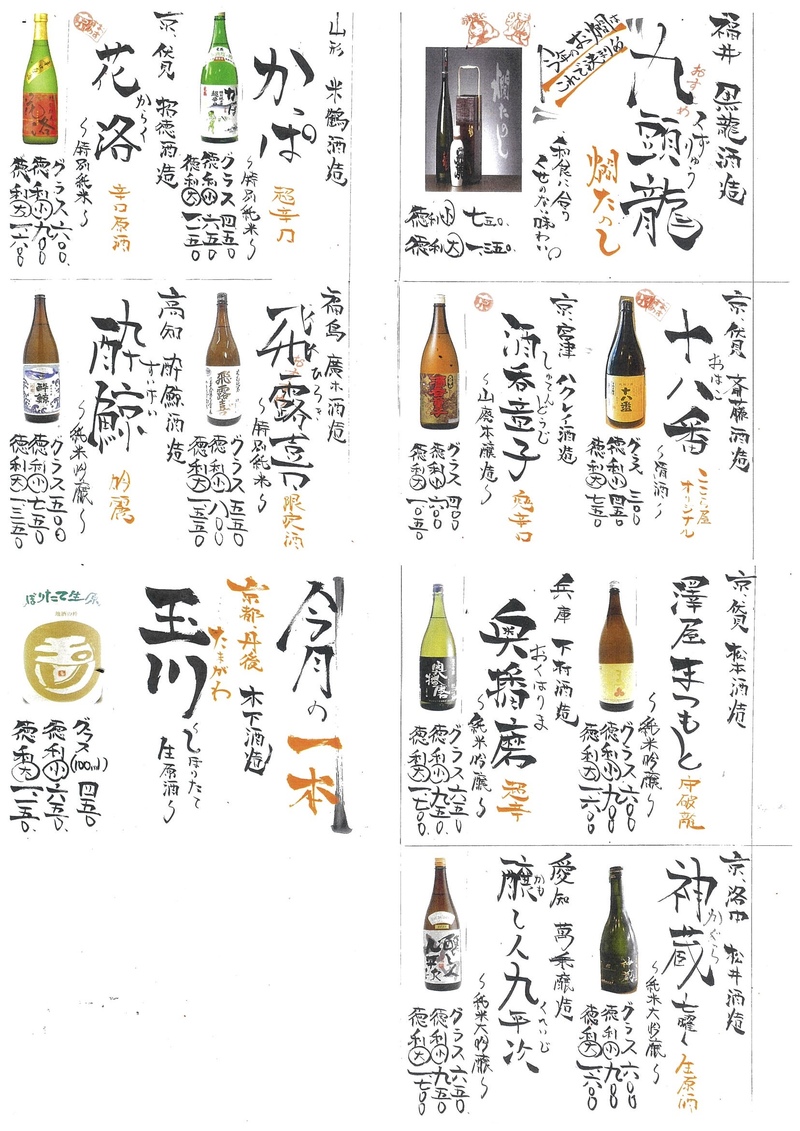 福井 黒龍酒造
九頭龍
くずりゅう
おすすめ
燗たのし
今年のお燗は
これで決まりめ
燗たのし
和食に合う
くせのない味わい
徳利小 七五〇.
徳利大 一三五〇.
京、伏見 斎藤酒造
十八番
おはこ
〜清酒〜
オリジナル
十八番
グラス 三〇〇
徳利小 四五〇
徳利大 七五〇
京、宮津 ハクレイ酒造
酒呑童子
しゅてんどうじ
〜山廃本醸造〜
超辛口
グラス 四〇〇
徳利小 六〇〇
徳利大 一〇五〇
京、伏見 松本酒造
澤屋まつもと
守破龍
〜純米吟醸〜
グラス 六〇〇
徳利小 九〇〇
徳利大 一六〇〇
兵庫 下村酒造
奥播磨
おくはりま
〜純米吟醸〜
超辛
奥播磨
グラス 六五〇
徳利小 九五〇
徳利大 一七〇〇
京、洛中 松井酒造
神蔵 七曜
かぐら
生原酒
〜純米大吟醸〜
神蔵
グラス 六〇〇
徳利小 九〇〇
徳利大 一六〇〇
愛知 萬乗醸造
醸し人九平次
かも
くへいじ
〜純米大吟醸〜
グラス 六五〇
徳利小 九五〇
徳利大 一七〇〇
山形 米鶴酒造
かっぱ
超辛口
〜特別純米〜
グラス 四五〇
徳利小 六五〇
徳利大 一一五〇
京、伏見 招徳酒造
花洛
からく
〜特別純米〜
辛口原酒
花洛
グラス 六〇〇.
徳利小 九〇〇
徳利大 一六〇〇
福島 廣木酒造
飛露喜
ひろき
限定酒
〜特別純米〜
飛露喜
グラス 五五〇
徳利小 八〇〇
徳利大 一五五〇
高知 酔鯨酒造
酔鯨
すいげい
〜純米吟醸〜
吟麗
酔鯨
グラス 五〇〇
徳利小 七五〇
徳利大 一三五〇
今月の一本
京都・丹後 木下酒造
玉川
たまがわ
〜しぼりたて
生原酒〜
グラス(100ml) 四五〇
徳利小 六五〇.
徳利大 一一五〇.